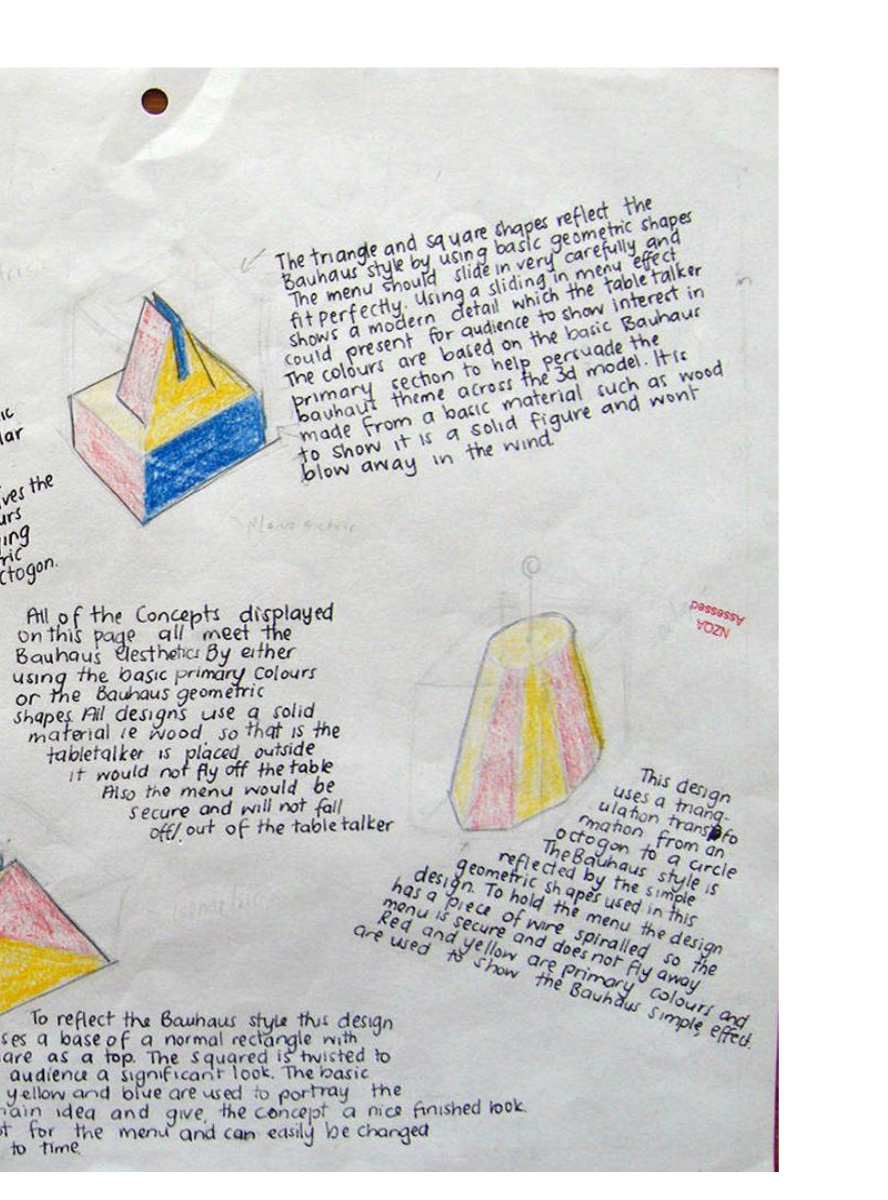 The triangle and square shapes reflect the
Bauhaus style by using basic geometric shapes
The menu should slide in very carefully and
fit perfectly. Using a sliding in menu effect
shows a modern detail which the table talker
could present for audience to show interest in
The colours are based on the basic Bauhaus
primary section to help persuade the
bauhaus theme across the 3d model. It is
made from a basic material such as wood
to show it is a solid figure and wont
blow away in the wind.
ic
lar
ves the
urs
ing
ric
ctogon.
Planometric
All of the Concepts displayed
on this page all meet the
Bauhaus Aesthetics By either
using the basic primary colours
or the Bauhaus geometric
shapes. All designs use a solid
material ie wood so that is the
tabletalker is placed outside
it would not fly off the table
Also the menu would be
secure and will not fall
off/out of the table talker
NZQA
Assessed
This design
uses a triang-
ulation transfo
rmation from an
octogon to a circle
The Bauhaus style is
reflected by the simple
geometric shapes used in this
design. To hold the menu the design
has a piece of wire spiralled so the
menu is secure and does not fly away
Red and yellow are primary colours and
are used to show the Bauhaus simple effect.
isometric
To reflect the Bauhaus style this design
ses a base of a normal rectangle with
are as a top. The squared is twisted to
audience a significant look. The basic
yellow and blue are used to portray the
ain idea and give, the concept a nice finished look.
t for the menu and can easily be changed
to time